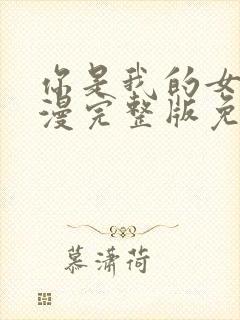 你是我的女
漫完整版免
慕潇荷